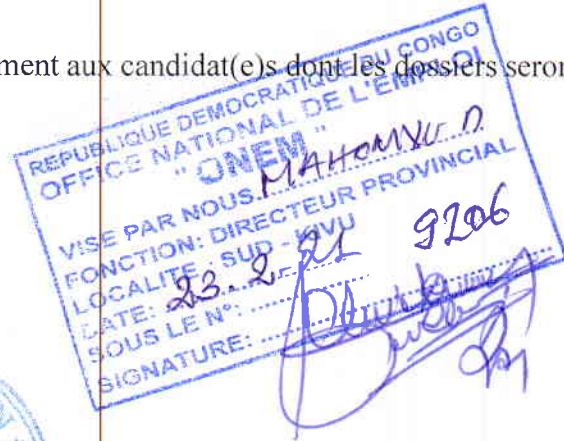 ment aux candidat(e)s dont les dossiers seron
REPUBLIQUE DEMOCRATIQUE DU CONGO
OFFICE NATIONAL DE L'EMPLOI
" ONEM "
VISE PAR NOUS MAHOMVU D
FONCTION: DIRECTEUR PROVINCIAL
LOCALITE : SUD - KIVU
DATE: 23.2.21
SOUS LE N°: 9206
SIGNATURE: